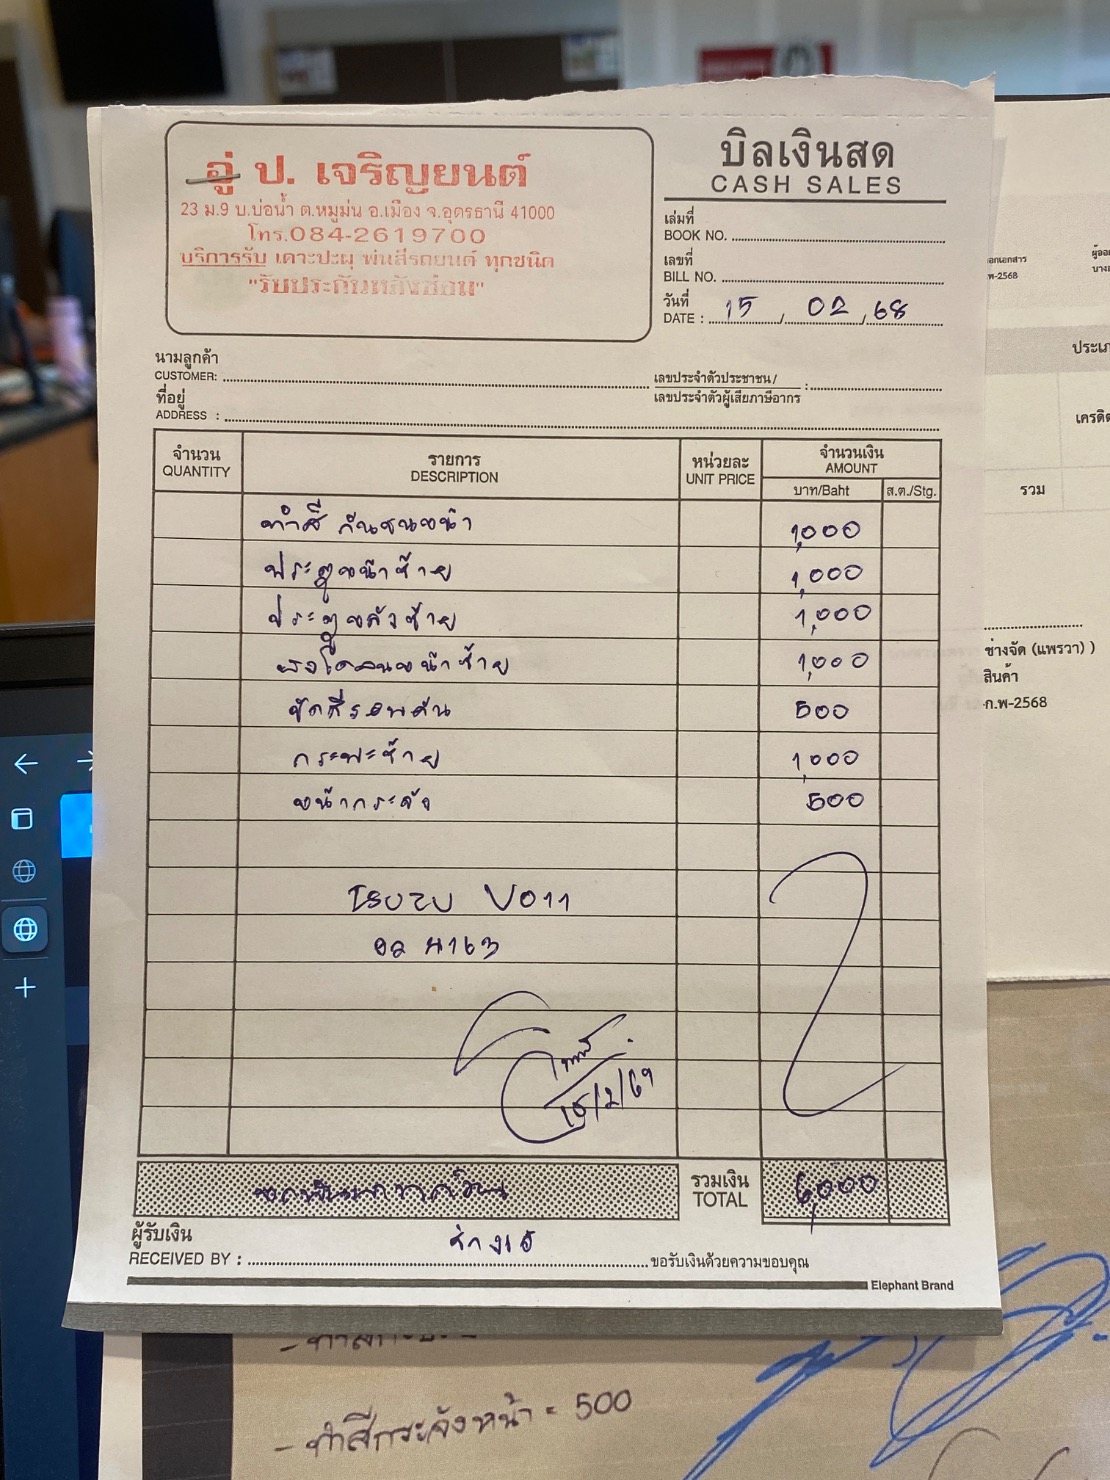 อู่ ป. เจริญยนต์
23 ม.9 บ.บ่อน้ำ ต.หมูม่น อ.เมือง จ.อุดรธานี 41000
โทร.084-2619700
บริการรับ เคาะปะผุ พ่นสีรถยนต์ ทุกชนิด
"รับประกันหลังซ่อม"
บิลเงินสด
CASH SALES
เล่มที่
BOOK NO.
เลขที่
BILL NO.
วันที่
DATE : 15 / 02 / 68
นามลูกค้า
CUSTOMER:
เลขประจำตัวประชาชน/
เลขประจำตัวผู้เสียภาษีอากร :
ที่อยู่
ADDRESS :
จำนวน
QUANTITY
รายการ
DESCRIPTION
หน่วยละ
UNIT PRICE
จำนวนเงิน
AMOUNT
บาท/Baht ส.ต./Stg.
ทำสี กันชนหน้า 1,000
ประตูหน้าซ้าย 1,000
ประตูหลังซ้าย 1,000
บังโคลนหน้าซ้าย 1,000
ขัดสีรอบคัน 500
กระบะซ้าย 1,000
หน้ากระจัง 500
ISUZU V011
4163
15/2/69
หกพันบาทถ้วน
รวมเงิน
TOTAL
6,000
ผู้รับเงิน
RECEIVED BY :
ขอรับเงินด้วยความขอบคุณ
Elephant Brand
- ทำสีกระจังหน้า = 500
พ-2568
ประเภ
เครดิต
รวม
ช่างจัด (แพรวา) )
สินค้า
ก.พ-2568